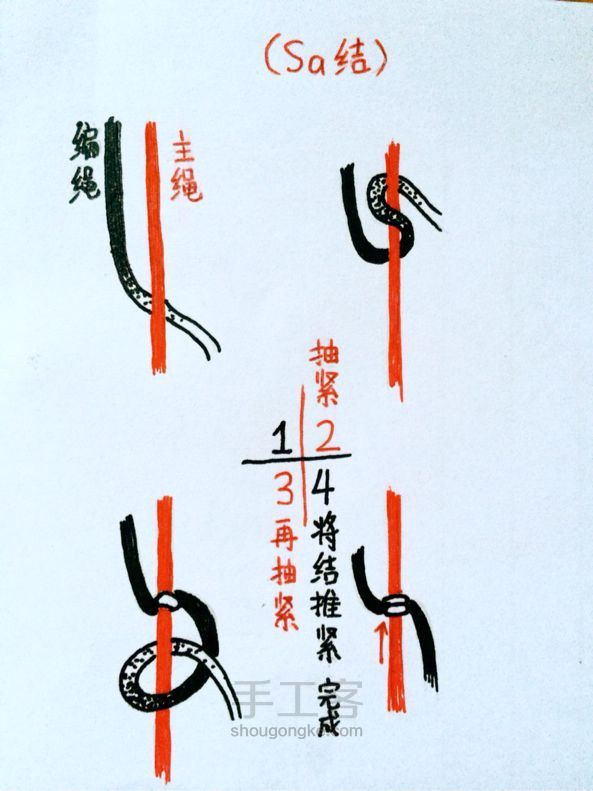 (Sa结)
编绳
主绳
抽紧
1
2
3
4
再抽紧
将结推紧 完成
手工客
shougongke.com